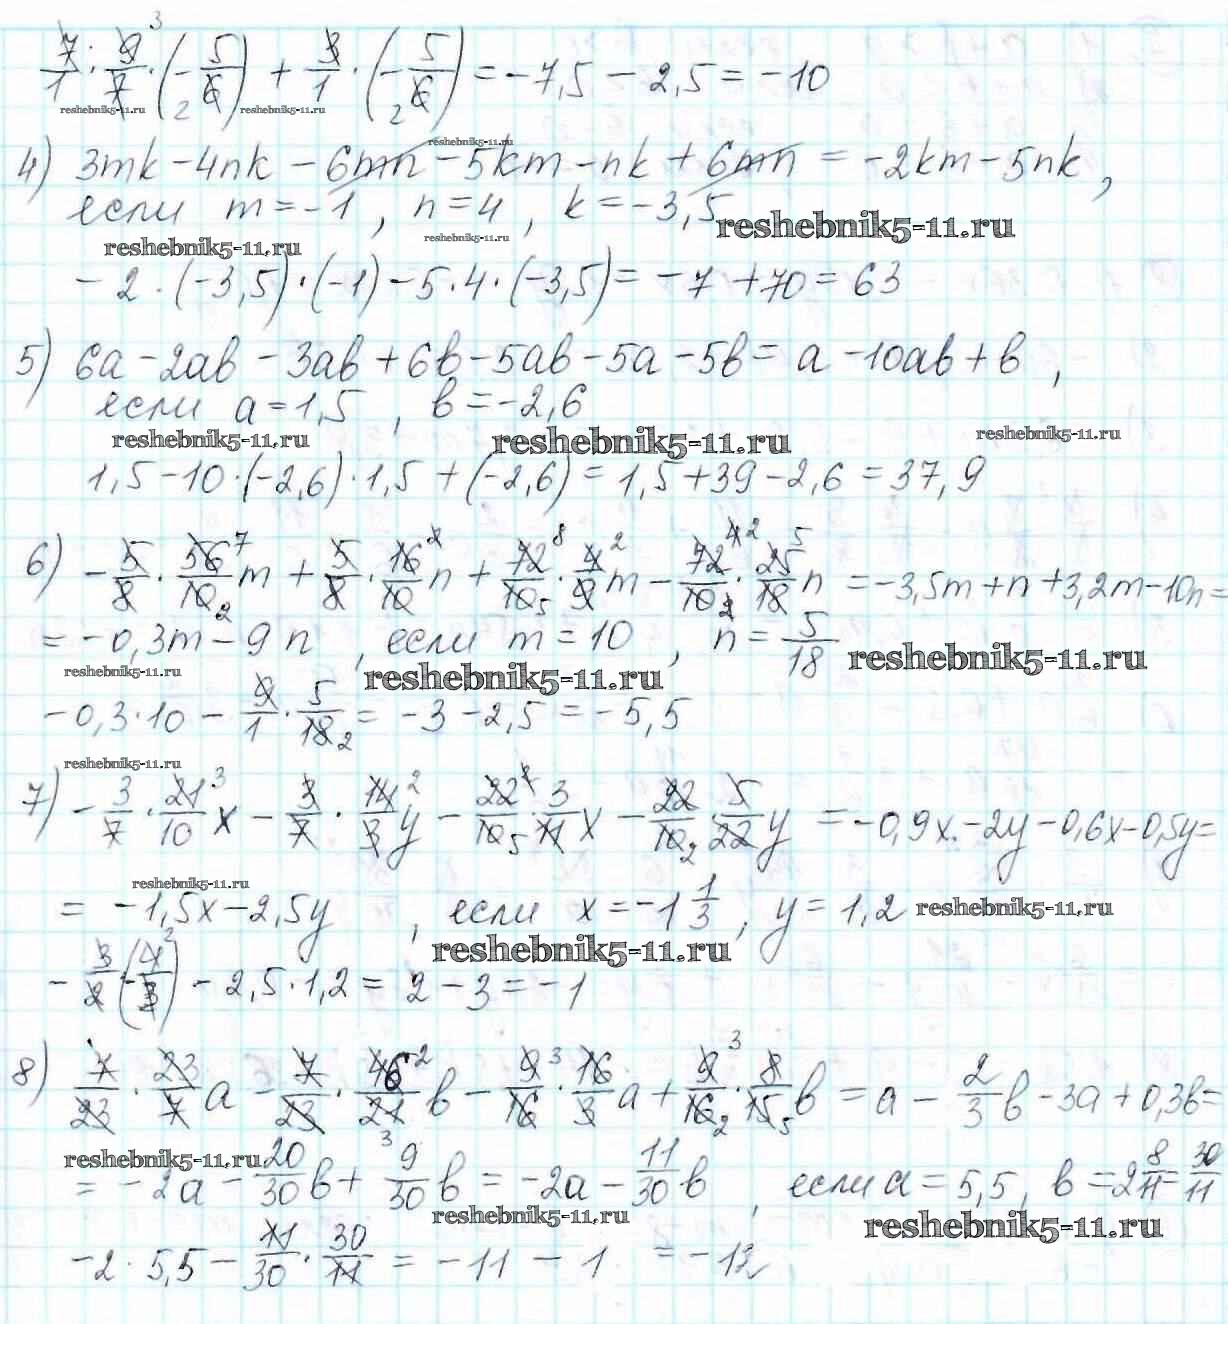 7/1 · 9/7 · (-5/6) + 3/1 · (-5/6) = -7,5 - 2,5 = -10
reshebnik5-11.ru reshebnik5-11.ru
reshebnik5-11.ru
4) 3mk - 4nk - 6mn - 5km - nk + 6mn = -2km - 5nk,
если m = -1, n = 4, k = -3,5
reshebnik5-11.ru reshebnik5-11.ru reshebnik5-11.ru
- 2 · (-3,5) · (-1) - 5 · 4 · (-3,5) = -7 + 70 = 63
5) 6a - 2ab - 3ab + 6b - 5ab - 5a - 5b = a - 10ab + b,
если a = 1,5, b = -2,6
reshebnik5-11.ru reshebnik5-11.ru reshebnik5-11.ru
1,5 - 10 · (-2,6) · 1,5 + (-2,6) = 1,5 + 39 - 2,6 = 37,9
6) - 5/8 · 56/10 m + 5/8 · 16/10 n + 72/10 · 4/9 m - 72/10 · 25/18 n = -3,5m + n + 3,2m - 10n =
= -0,3m - 9n, если m = 10, n = 5/18
reshebnik5-11.ru reshebnik5-11.ru reshebnik5-11.ru
-0,3 · 10 - 9/1 · 5/18 = -3 - 2,5 = -5,5
reshebnik5-11.ru
7) - 3/7 · 21/10 x - 3/7 · 14/3 y - 22/10 · 3/11 x - 22/10 · 5/22 y = -0,9x - 2y - 0,6x - 0,5y =
reshebnik5-11.ru
= -1,5x - 2,5y, если x = -1 1/3, y = 1,2
reshebnik5-11.ru reshebnik5-11.ru
- 3/2 (-4/3) - 2,5 · 1,2 = 2 - 3 = -1
8) 7/23 · 23/7 a - 7/23 · 46/21 b - 9/16 · 16/3 a + 9/16 · 8/15 b = a - 2/3 b - 3a + 0,3b =
reshebnik5-11.ru
= -2a - 20/30 b + 9/30 b = -2a - 11/30 b, если a = 5,5, b = 2 8/11 = 30/11
reshebnik5-11.ru reshebnik5-11.ru
-2 · 5,5 - 11/30 · 30/11 = -11 - 1 = -12